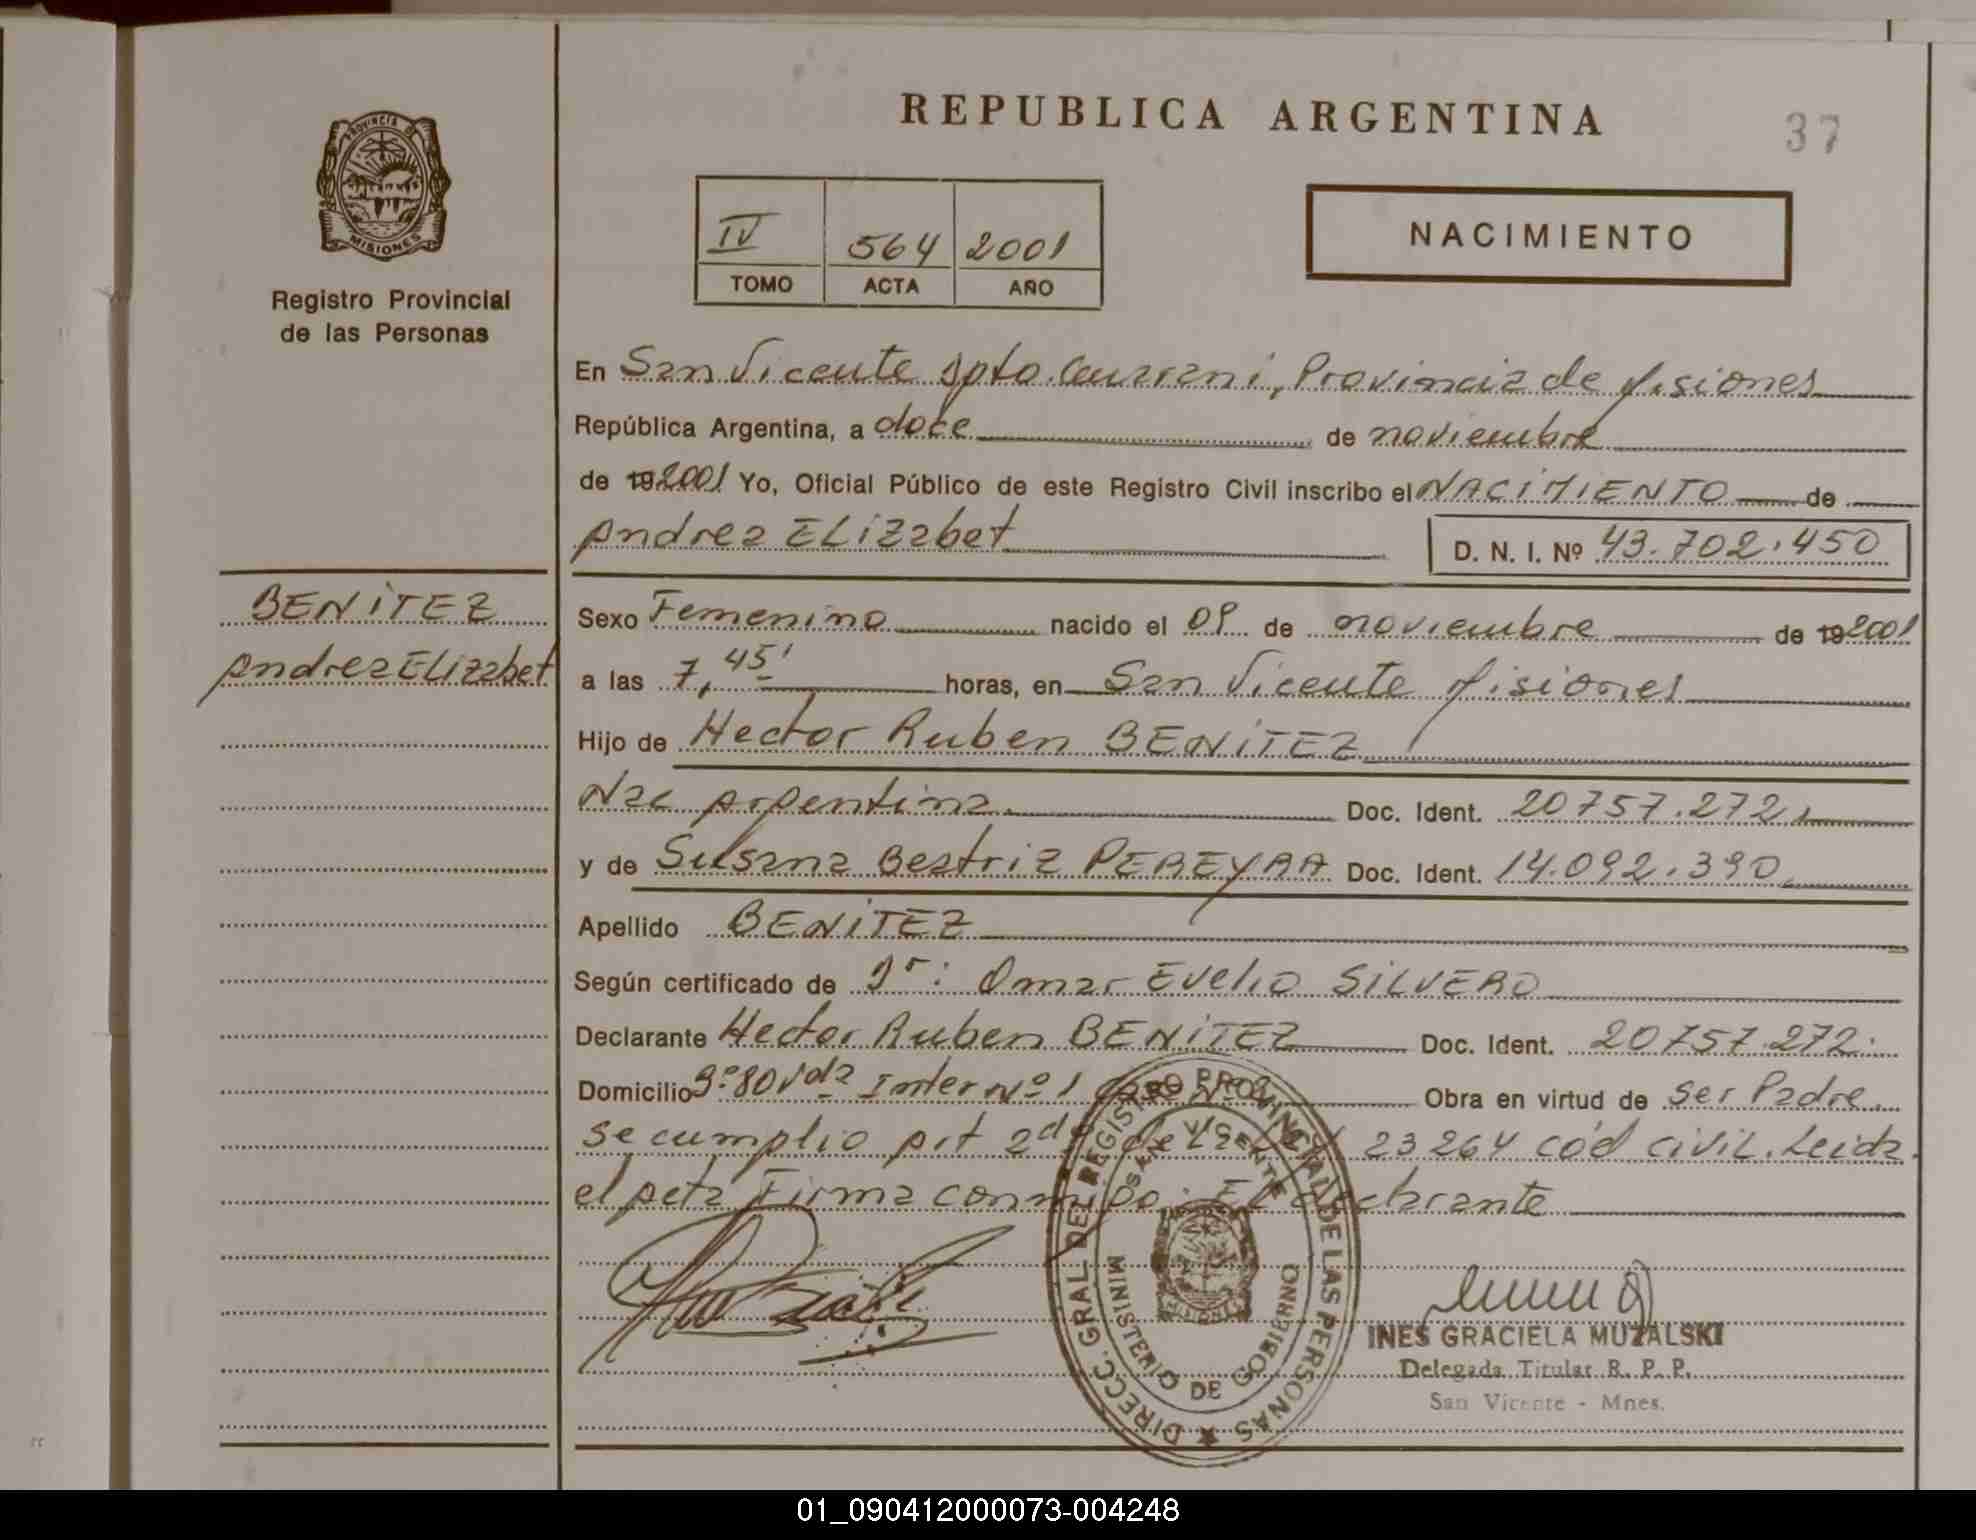 REPUBLICA ARGENTINA
37
PROVINCIA D
MISIONES
Registro Provincial
de las Personas
IV 564 2001
TOMO ACTA AÑO
NACIMIENTO
En San Vicente Dpto. Guarani, Provincia de Misiones
República Argentina, a doce de noviembre
de 19 2001 Yo, Oficial Público de este Registro Civil inscribo el NACIMIENTO de
Andrea ELizabet D. N. I. Nº 43.702.450
BENITEZ
Andrea ELizabet
Sexo Femenino nacido el 09 de noviembre de 19 2001
a las 7,45' horas, en San Vicente Misiones
Hijo de Hector Ruben BENITEZ
Nac Argentina. Doc. Ident. 20757.272
y de Susana Beatriz PEREYRA Doc. Ident. 14.092.390
Apellido BENITEZ
Según certificado de Dr: Omar Evelio SILVERO
Declarante Hector Ruben BENITEZ Doc. Ident. 20757.272.
Domicilio Bº 80 Vdª Inter Nº 1 Obra en virtud de ser Padre.
se cumplio Art 2do de la 23264 cód civil. Leida
el Acta Firma conmigo. El declarante
DIRECC. GRAL. DEL REGISTRO PROVINCIAL DE LAS PERSONAS
SAN VICENTE
MINISTERIO DE GOBIERNO
MISIONES
INES GRACIELA MUZALSKI
Delegada Titular R. P. P.
San Vicente - Mnes.
01_090412000073-004248